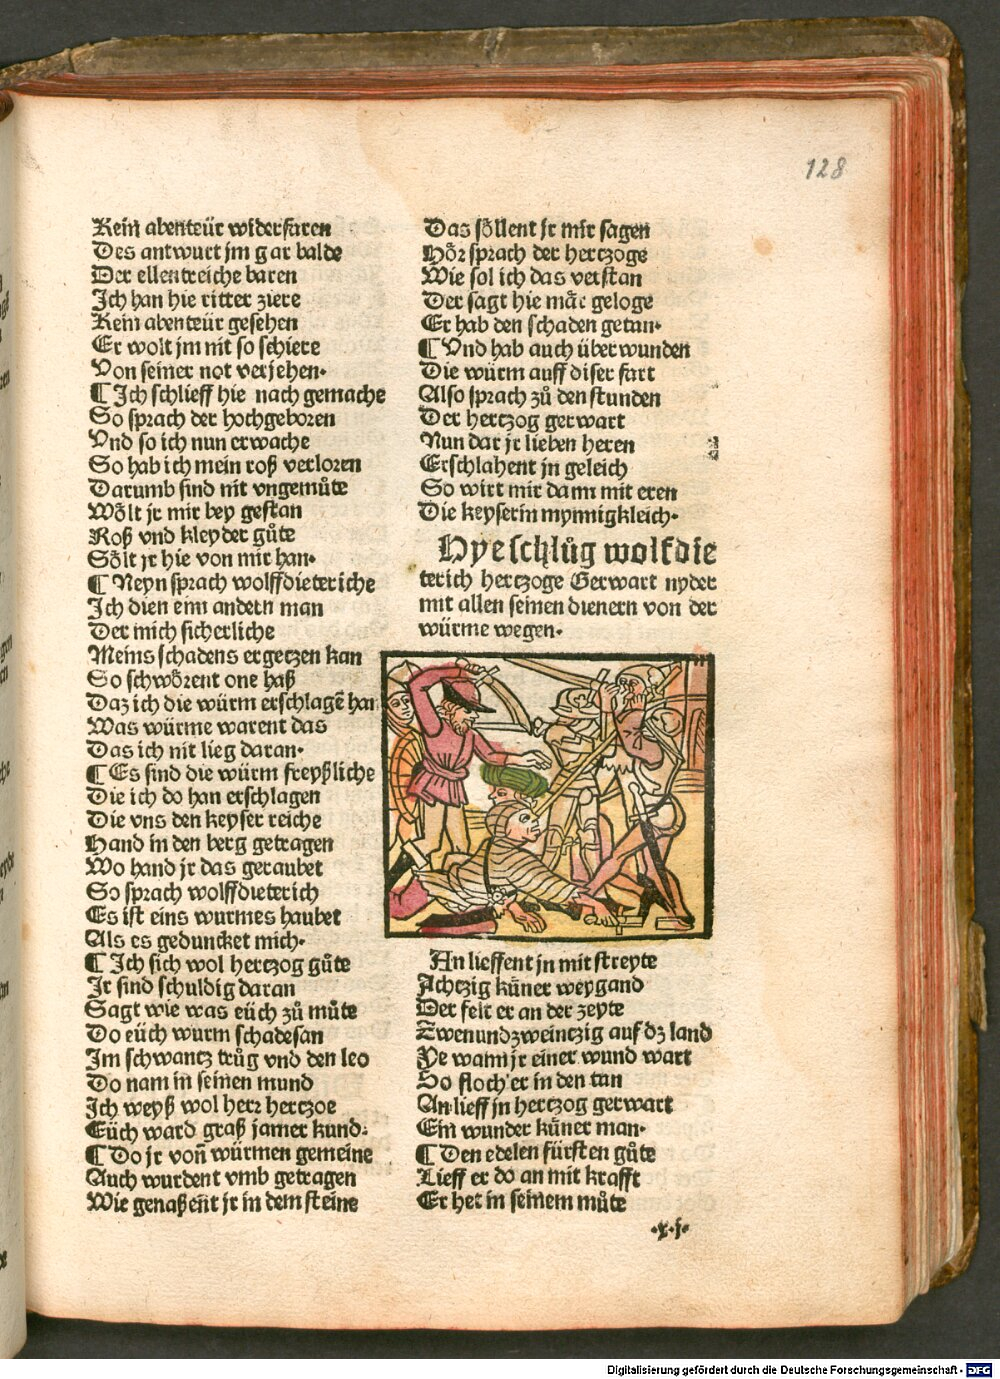 128
Kein abenteür widerfaren
Des antwurt jm gar balde
Der ellentreiche baren
Ich han hie ritter ziere
Kein abenteür gesehen
Er wolt jm nit so schiere
Von seiner not verjehen.
¶ Ich schlieff hie nach gemache
So sprach der hochgeboren
Vnd so ich nun erwache
So hab ich mein roß verloren
Darumb sind nit vngemuͤte
Woͤlt jr mir bey gestan
Roß vnd kleyder guͤte
Soͤlt jr hie von mir han.
¶ Neyn sprach wolffdieteriche
Ich dien eim andern man
Der mich sicherliche
Meins schadens ergetzen kan
So schwoͤrent one haß
Daz ich die würm erschlagē han
Was würme warent das
Das ich nit lieg daran.
¶ Es sind die würm freyßliche
Die ich do han erschlagen
Die vns den keyser reiche
Hand in den berg getragen
Wo hand jr das geraubet
So sprach wolffdieterich
Es ist eins wurmes haubet
Als es geduncket mich.
¶ Ich sich wol hertzog guͤte
Ir sind schuldig daran
Sagt wie was eüch zuͦ muͦte
Do eüch wurm schadesan
Im schwantz truͦg vnd den leo
Do nam in seinen mund
Ich weyß wol herꝛ hertzoe
Eüch ward graß jamer kund:
¶ Do jr von̄ würmen gemeine
Auch wurdent vmb getragen
Wie genaßen̄t jr in dem steine
Das soͤllent jr mir sagen
Hoͤꝛ sprach der hertzoge
Wie sol ich das verstan
Der sagt hie māc geloge
Er hab den schaden getan.
¶ Vnd hab auch überwunden
Die würm auff diser fart
Also sprach zuͦ den stunden
Der hertzog gerwart
Nun dar jr lieben heren
Erschlahent jn geleich
So wirt mir dann mit eren
Die keyserin mynnigkleich.
Hye schluͦg wolfdie
terich hertzoge Gerwart nyder
mit allen seinen dienern von der
würme wegen.
An lieffent jn mit streyte
Achtzig küner weygand
Der felt er an der zeyte
Zwenundzweintzig auf dz land
Ye wann jr einer wund wart
So floch er in den tan
An lieff jn hertzog gerwart
Ein wunder küner man.
¶ Den edelen fürsten guͤte
Lieff er do an mit krafft
Er het in seinem muͦte
.x.j.
Digitalisierung gefördert durch die Deutsche Forschungsgemeinschaft - DFG